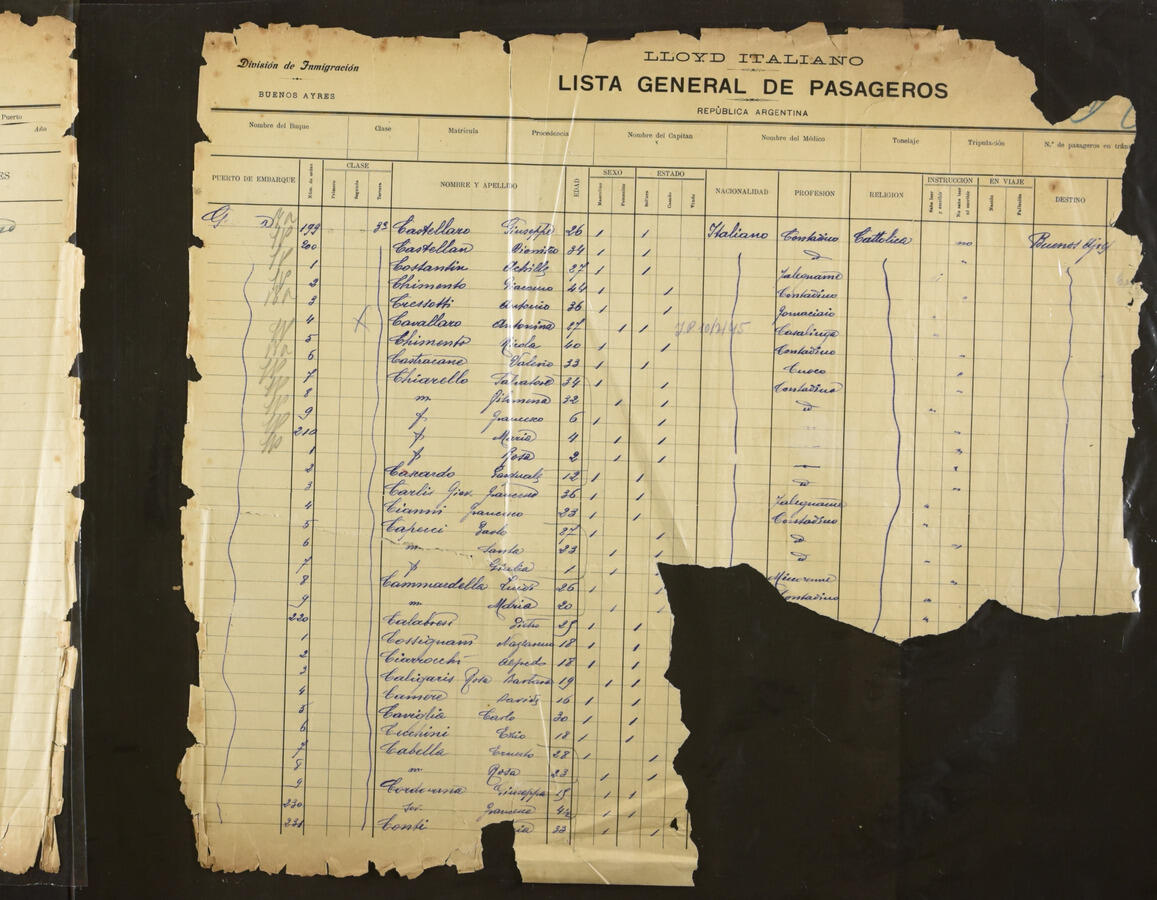 Puerto
Año
ES
División de Inmigración
BUENOS AYRES
LLOYD ITALIANO
LISTA GENERAL DE PASAGEROS
REPÚBLICA ARGENTINA
Nombre del Buque Clase Matrícula Procedencia Nombre del Capitan Nombre del Médico Tonelaje Tripulación N.º de pasageros en trán
PUERTO DE EMBARQUE Núm. de orden CLASE Primera Segunda Tercera NOMBRE Y APELLIDO EDAD SEXO Masculino Femenino ESTADO Soltero Casado Viudo NACIONALIDAD PROFESION RELIGION INSTRUCCIÓN Sabe leer y escribir No sabe leer ni escribir EN VIAJE Nacido Fallecido DESTINO
G 199 3ª Castellaro Giuseppe 26 Italiano Contadino Cattolica no Buenos Ayres
200 Castellan 34 d
1 Costantin Achille 27 Falegname
2 Chimento Giacomo 44 Contadino
3 Cressotti Antonio 36 Fornaciaio
4 X Cavallaro Antonina 27 Casalinga
5 Chimento Nicola 40 Contadino
6 Castracane Valerio 33 Cuoco
7 Chiarello Salvatore 34 Contadino
8 m Filomena 32 d
9 f Francesco 6
210 f Maria 4
1 f Rosa 2
2 Casardo Pasquale 12 d
3 Carlis Giov. Francesco 36 Falegname
4 Cianni Francesco 23 Contadino
5 Capecci Paolo 27 d
6 m Santa 23 d
7 f Giulia 1
8 Cammardella Luigi 26
9 m Maria 20 Contadino
220 Calabresi Pietro 25
1 Cossignani Nazzareno 18
2 Ciarrocchi Alfredo 18
3 Caligaris Rosa Barbara 19
4 Camere David 16
5 Caviglia Carlo 30
6 Cecchini Ezio 18
7 Cabella Ernesto 28
8 m Rosa 23
9 Giuseppa
230 Francesca
231 Conti 33